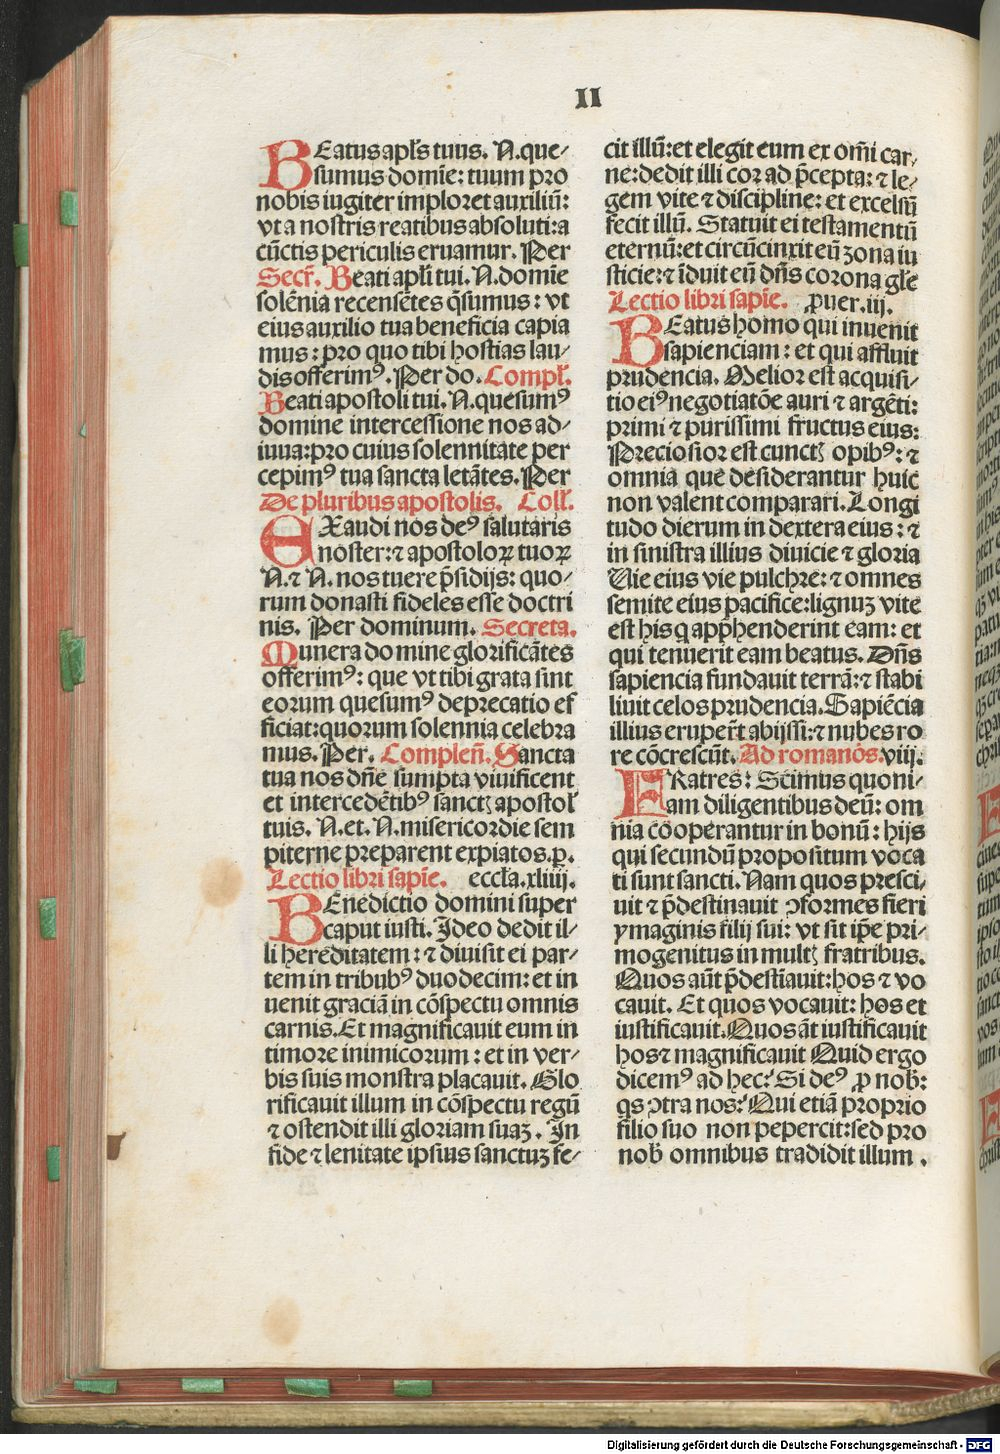 II
BEatus apl̄s tuus. N. que⸗
sumus domīe: tuum pro
nobis iugiter imploret auxiliū:
vt a nostris reatibus absoluti: a
cūctis periculis eruamur. Per
Secr̄. Beati apl̄i tui. N. domīe
solēnia recensētes q̄sumus: vt
eius auxilio tua beneficia capia
mus: pro quo tibi hostias lau⸗
dis offerimꝰ. Per do. Compl̄.
Beati apostoli tui. N. quesumꝰ
domine intercessione nos ad⸗
iuua: pro cuius solennitate per
cepimꝰ tua sancta letātes. Per
De pluribus apostolis. Coll̄.
EXaudi nos deꝰ salutaris
noster: ⁊ apostoloꝝ tuoꝝ
N. ⁊ N. nos tuere p̄sidijs: quo⸗
rum donasti fideles esse doctri
nis. Per dominum. Secreta.
Munera domine glorificātes
offerimꝰ: que vt tibi grata sint
eorum quesumꝰ deprecatio ef
ficiat: quorum solennia celebra
mus. Per. Complen̄. Sancta
tua nos dn̄e sumpta viuificent
et intercedētibꝰ sanctꝭ apostol̄
tuis. N. et. N. misericordie sem
piterne preparent expiatos. ꝑ.
Lectio libri sapīe. eccl̄a. xliiij.
BEnedictio domini super
caput iusti. Ideo dedit il⸗
li hereditatem: ⁊ diuisit ei par⸗
tem in tribubꝰ duodecim: et in
uenit graciā in cōspectu omnis
carnis. Et magnificauit eum in
timore inimicorum: et in ver⸗
bis suis monstra placauit. Glo
rificauit illum in cōspectu regū
⁊ ostendit illi gloriam suaꝫ. In
fide ⁊ lenitate ipsius sanctuꝫ fe⸗
cit illū: et elegit eum ex om̄i car⸗
ne: dedit illi cor ad p̄cepta: ⁊ le⸗
gem vite ⁊ discipline: et excelsū
fecit illū. Statuit ei testamentū
eternū: et circūcinxit eū zona iu
sticie: ⁊ īduit eū dn̄s corona gl̄e
Lectio libri sapīe. ꝓuer. iij.
BEatus homo qui inuenit
sapienciam: et qui affluit
prudencia. Melior est acquisi⸗
tio eiꝰ negotiatōe auri ⁊ argēti:
primi ⁊ purissimi fructus eius:
Preciosior est cunctꝭ opibꝰ: ⁊
omnia que desiderantur huic
non valent comparari. Longi
tudo dierum in dextera eius: ⁊
in sinistra illius diuicie ⁊ gloria
Uie eius vie pulchre: ⁊ omnes
semite eius pacifice: lignuꝫ vite
est his q app̄henderint eam: et
qui tenuerit eam beatus. Dn̄s
sapiencia fundauit terrā: ⁊ stabi
liuit celos prudencia. Sapiēcia
illius erupert̄ abijssi: ⁊ nubes ro
re cōcrescūt. Ad romanos. viij.
FRatres: Scimus quoni⸗
am diligentibus deū: om
nia cooperantur in bonū: hijs
qui secundū propositum voca
ti sunt sancti. Nam quos presci⸗
uit ⁊ p̄destinauit ꝯformes fieri
ymaginis filij sui: vt sit ip̄e pri⸗
mogenitus in multꝭ fratribus.
Quos aūt p̄destīauit: hos ⁊ vo
cauit. Et quos vocauit: hos et
iustificauit. Quos āt iustificauit
hos⁊ magnificauit Quid ergo
dicemꝰ ad hec? Si deꝰ ꝓ nob̄:
qs ꝯtra nos? Qui etiā proprio
filio suo non pepercit: sed pro
nob̄ omnibus tradidit illum.
Digitalisierung gefördert durch die Deutsche Forschungsgemeinschaft - DFG